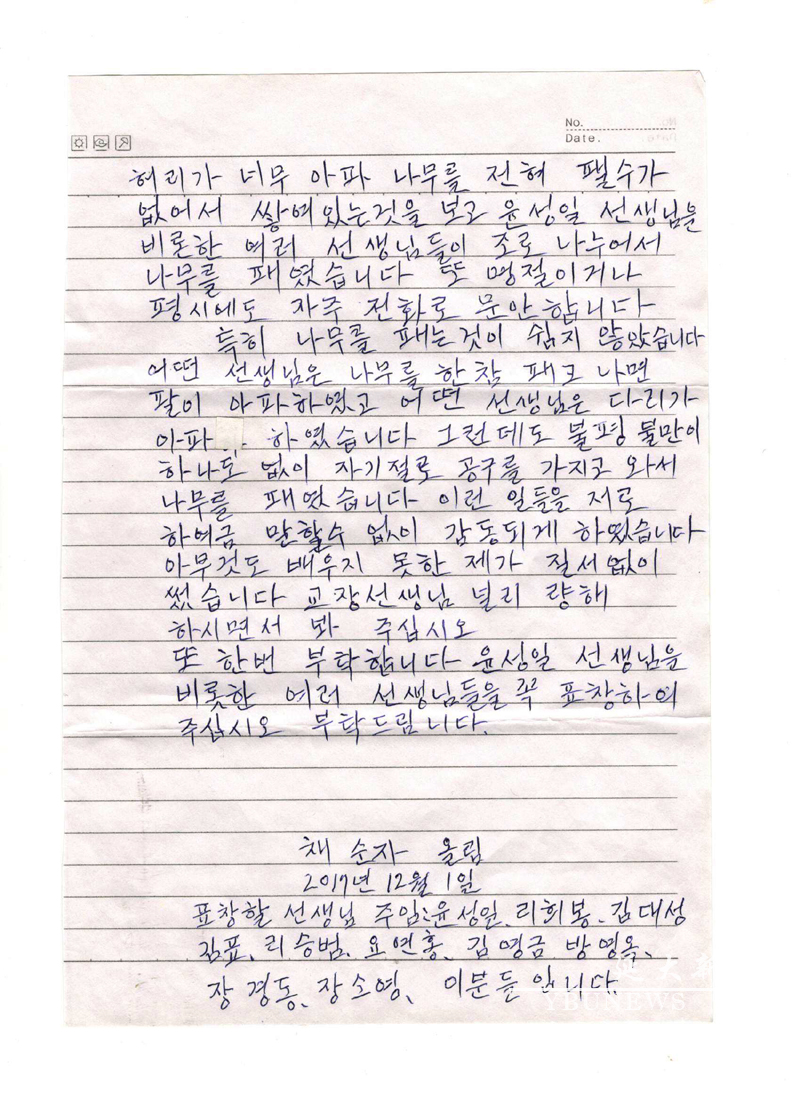 No.
Date.
허리가 너무 아파 나무를 전혀 팰수가
없어서 쌓여있는것을 보고 윤성일 선생님을
비론한 여러 선생님들이 조로 나누어서
나무를 패였습니다 또 명절이거나
평시에도 자주 전화로 문안합니다
특히 나무를 패는것이 쉽지 않았습니다
어떤 선생님은 나무를 한참 패고 나면
팔이 아파하였고 어떤 선생님은 다리가
아파 하였습니다 그런데도 불평 불만이
하나도 없이 자기절로 공구를 가지고 와서
나무를 패였습니다 이런 일들을 저로
하여금 말할수 없이 감동되게 하였습니다
아무것도 배우지 못한 제가 질서없이
썼습니다 교장선생님 널리 량해
하시면서 봐 주십시오
또 한번 부탁합니다 윤성일 선생님을
비롯한 여러 선생님들을 꼭 표창하여
주십시오 부탁드립니다.
채 순자 올림
2017년 12월 1일
표창할 선생님 주임:윤성일、리희봉、김대성
김표、리승범、요연홍、김영금 방영옥、
장경동、장소영、 이분들입니다
YBUNEWS